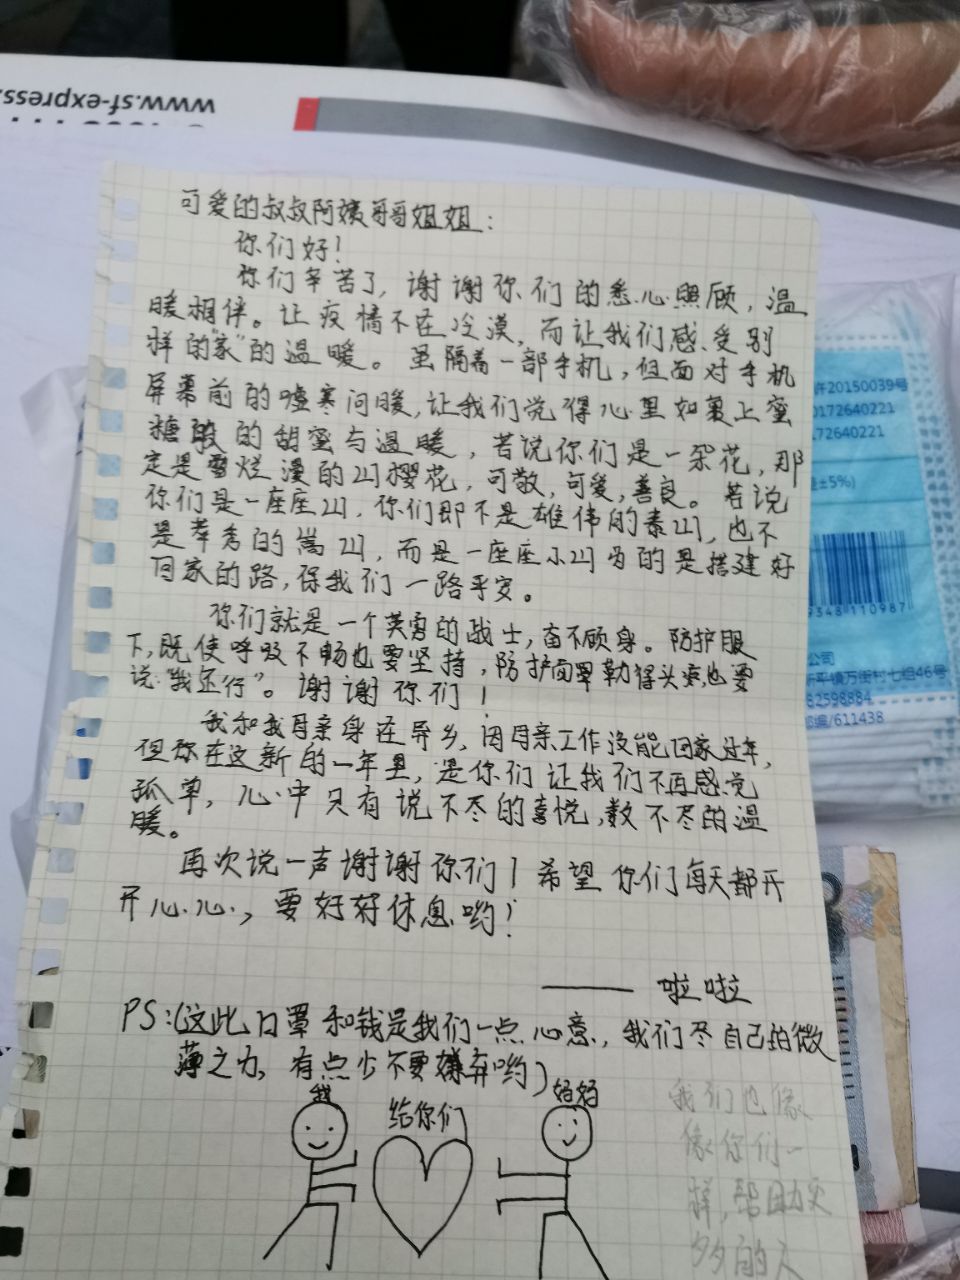 www.sf-express.
可爱的叔叔阿姨哥哥姐姐：
你们好！
你们辛苦了，谢谢你们的悉心照顾，温
暖相伴。让疫情不在冷漠，而让我们感受别
样的"家"的温暖。虽隔着一部手机，但面对手机
屏幕前的嘘寒问暖，让我们觉得心里如裹上蜜
糖般的甜蜜与温暖，若说你们是一朵花，那
定是需烂漫的山樱花，可敬，可爱，善良。若说
你们是一座座山，你们即不是雄伟的泰山，也不
是峻秀的嵩山，而是一座座小山为的是搭建好
回家的路，保我们一路平安。
你们就是一个英勇的战士，奋不顾身。防护服
下，既使呼吸不畅也要坚持，防护面罩勒得头疼，也要
说"我还行"。谢谢你们！
我和我母亲身在异乡，因母亲工作没能回家过年，
但你在这新的一年里，是你们让我们不再感觉
孤单，心中只有说不尽的喜悦，数不尽的温
暖。
再次说一声谢谢你们！希望你们每天都开
开心心，要好好休息哟！
—— 啦啦
PS：(这此口罩和钱是我们一点心意，我们尽自己的微
薄之力，有点少不要嫌弃哟)
我 给你们 妈妈
我们也像
像你们一
样，帮助更
多的人
许20150039号
0172640221
172640221
±5%)
9348 110987
公司
新平镇万街村七组46号
82598884
邮编/611438